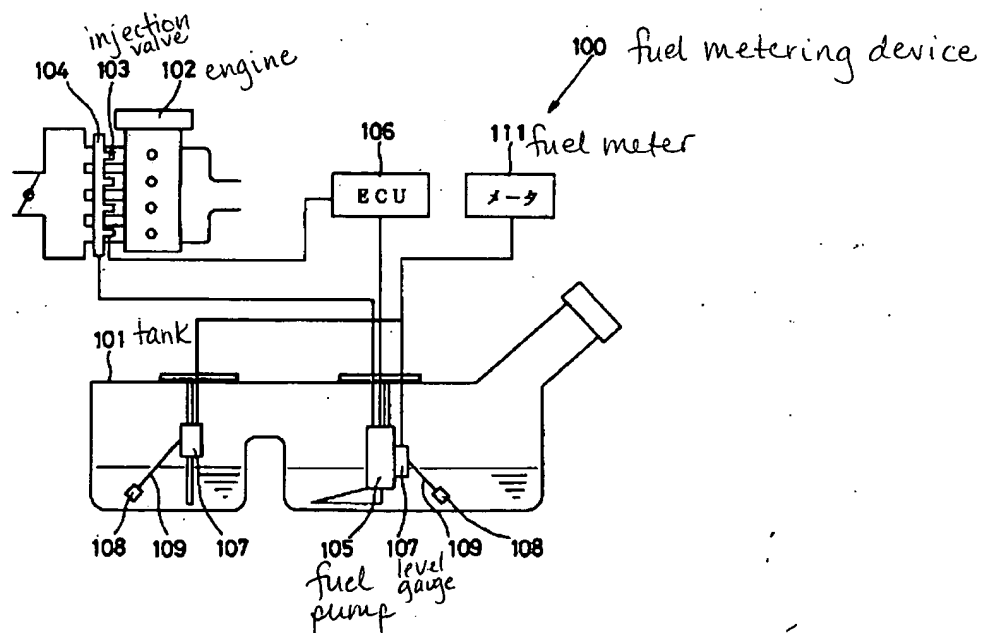 injection
valve
104 103 102 engine
100 fuel metering device
106
111 fuel meter
ECU
メータ
101 tank
108 109 107 105 107 109 108
fuel
pump
level
gauge